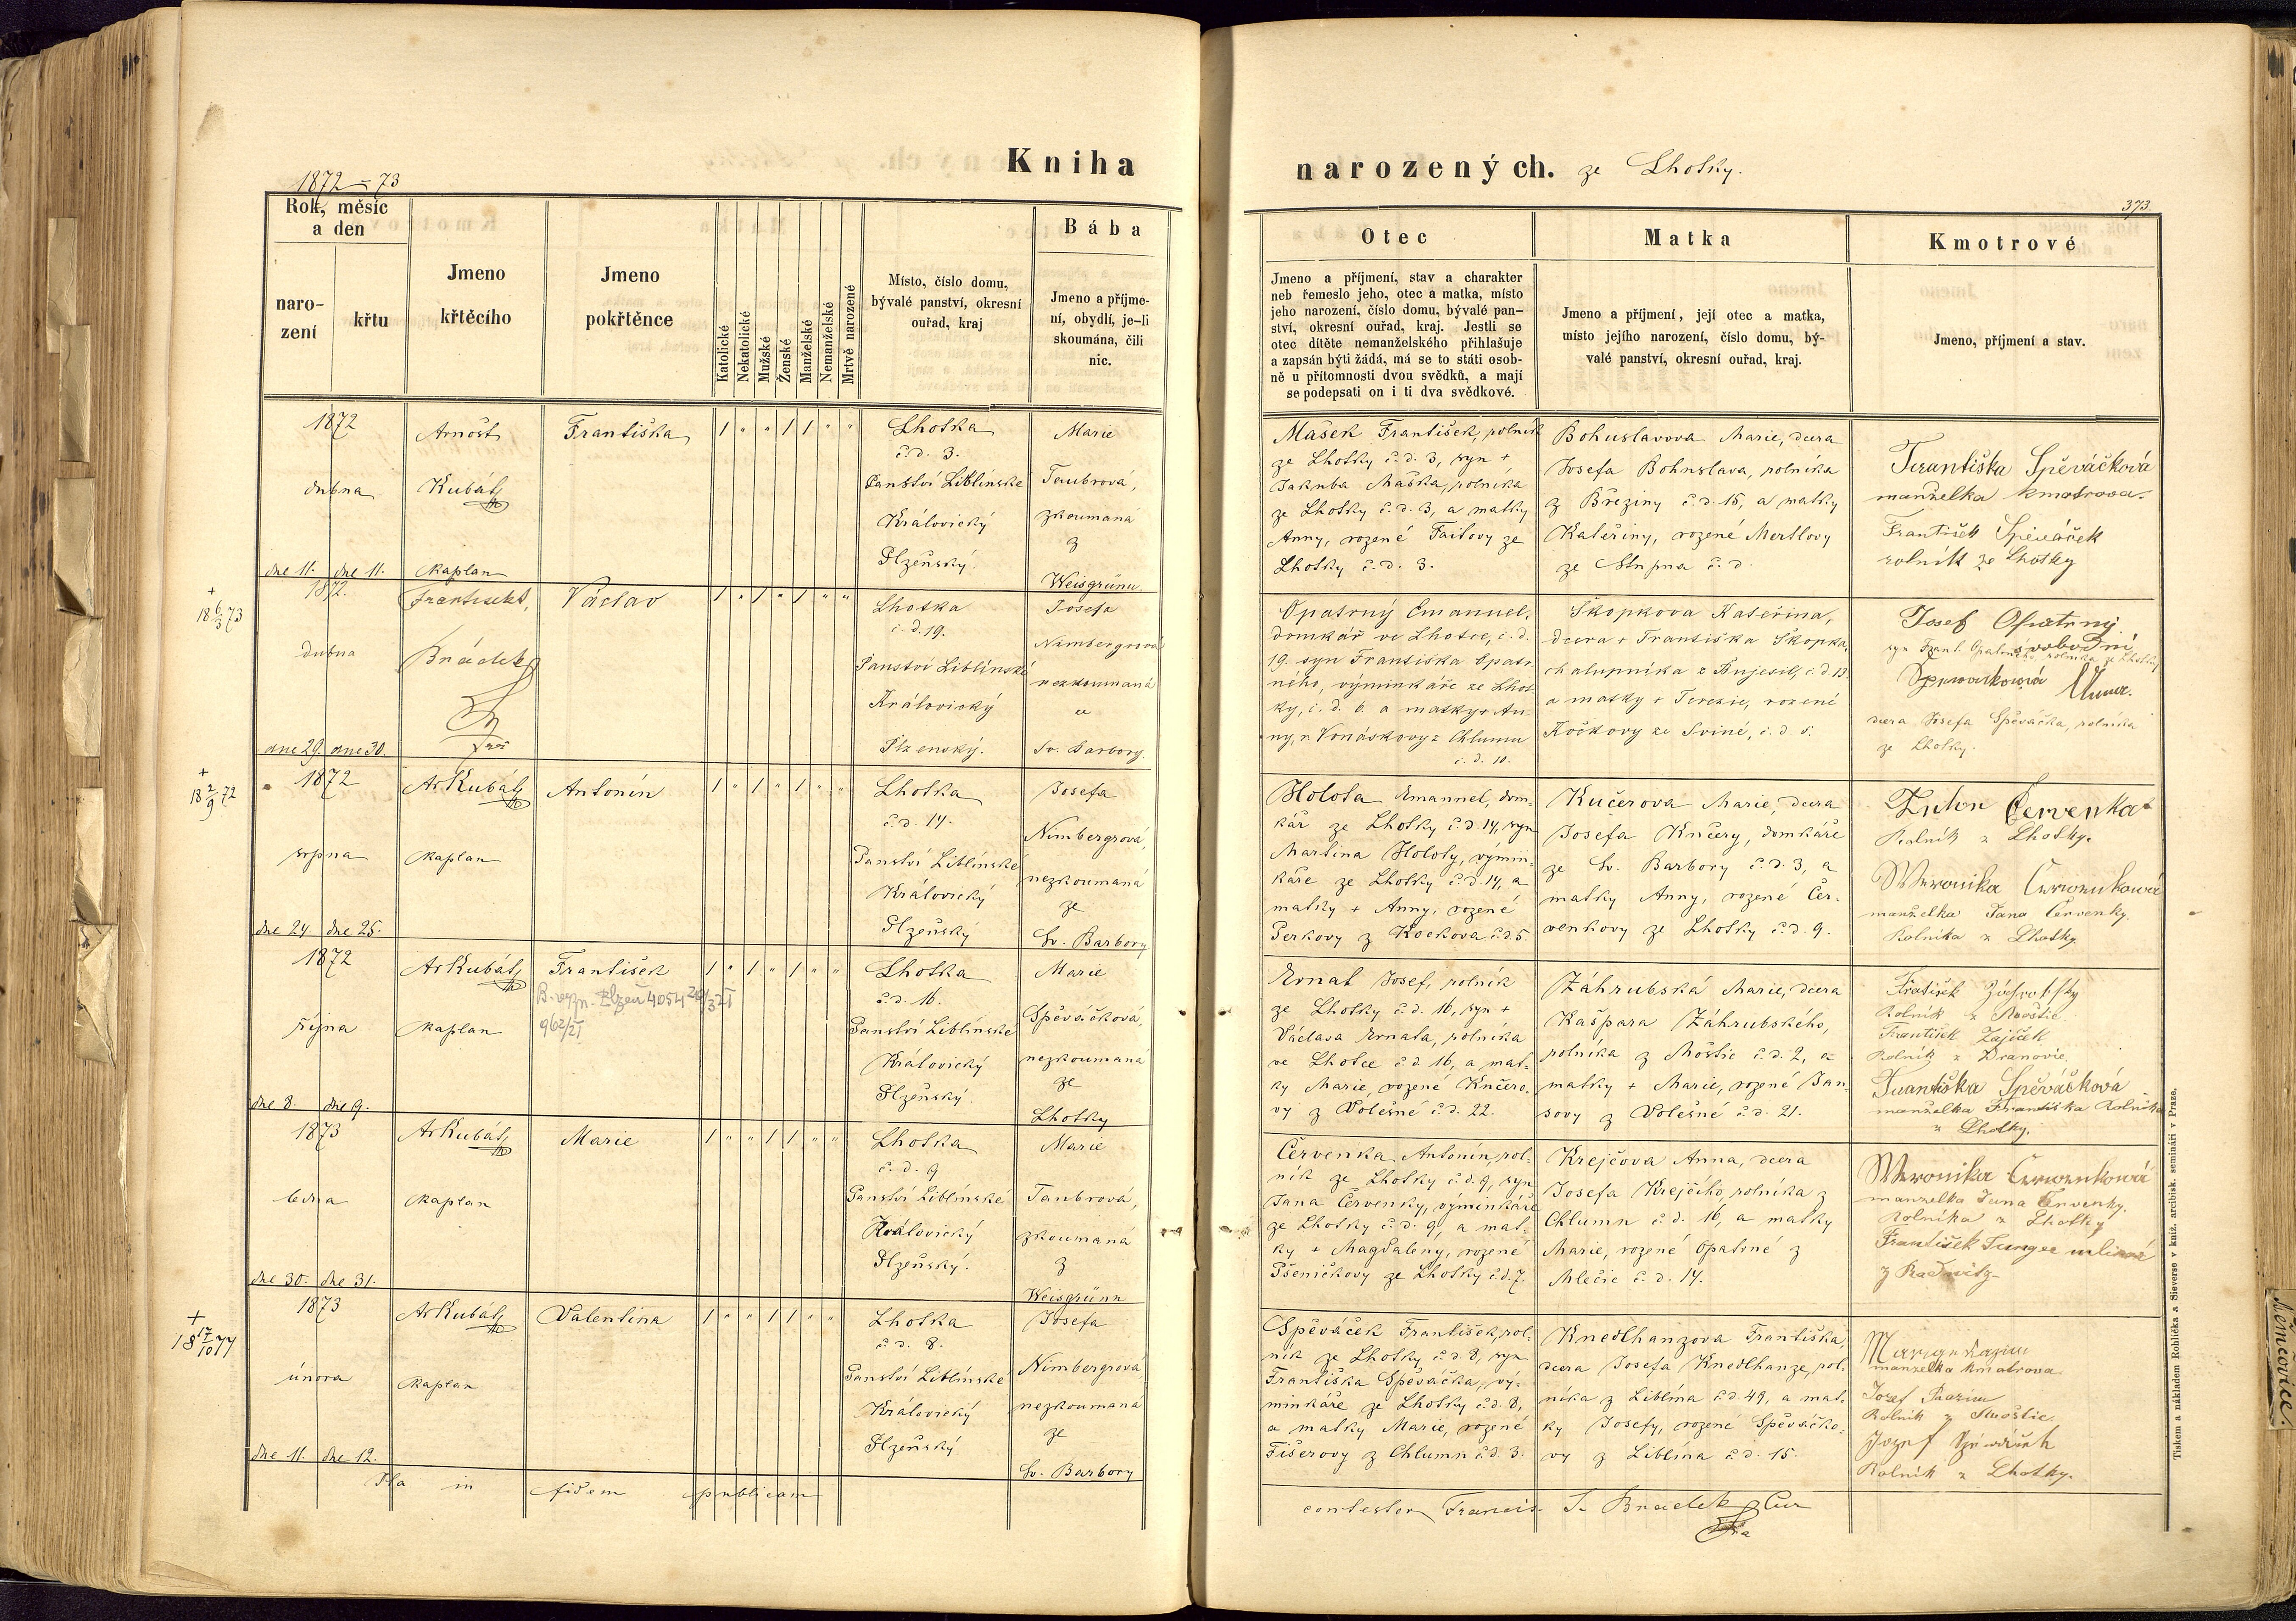 Kniha
narozených. ze Lhotky.
1872 = 73
373.
Rok, měsíc
a den
naro-
zení
křtu
Jmeno
křtěcího
Jmeno
pokřtěnce
Katolické
Nekatolické
Mužské
Ženské
Manželské
Nemanželské
Mrtvě narozené
Místo, číslo domu,
bývalé panství, okresní
ouřad, kraj
Bába
Jmeno a příjme-
ní, obydlí, je-li
skoumána, čili
nic.
Otec
Jmeno a příjmení, stav a charakter
neb řemeslo jeho, otec a matka, místo
jeho narození, číslo domu, bývalé pan-
ství, okresní ouřad, kraj. Jestli se
otec dítěte nemanželského přihlašuje
a zapsán býti žádá, má se to státi osob-
ně u přítomnosti dvou svědků, a mají
se podepsati on i ti dva svědkové.
Matka
Jmeno a příjmení, její otec a matka,
místo jejího narození, číslo domu, bý-
valé panství, okresní ouřad, kraj.
Kmotrové
Jmeno, příjmení a stav.
1872
dubna
dne 11. dne 11.
Arnošt
Kubát
kaplan
Františka
1 " " 1 1 " "
Lhotka
č. d. 3.
Panství Liblínské
Královický
Plzeňský.
Marie
Taubrová,
zkoumaná
z
Weisgrünu
Mašek František, rolník
ze Lhotky č. d. 3, syn +
Jakuba Maška, rolníka
ze Lhotky č. d. 3, a matky
Anny, rozené Faitovy ze
Lhotky č. d. 3.
Bohuslavova Marie, dcera
Josefa Bohuslava, rolníka
z Březiny č. d. 15, a matky
Kateřiny, rozené Mertlovy
ze Stupna č. d.
Františka Spěváčková
manželka kmotrova.
František Spěváček
rolník ze Lhotky
+
18 6/3 73
1872.
dubna
dne 29. dne 30.
Brádek
Václav
1 " 1 " 1 " "
Lhotka
č. d. 19.
Panství Liblínské
Královický
Plzenský.
Josefa
Nimbergrová
nezkoumaná
Sv. Barbory.
Opatrný Emanuel,
domkář ve Lhotce, č. d.
19. syn Františka Opatr-
ného, výminkáře ze Lhot-
ky, č. d. 6. a matky + An-
ny, r. Vonáskovy z Chlumu
č. d. 10.
Skopkova Kateřina,
dcera + Františka Skopka,
chalupníka z Bujesil, č. d. 13.
a matky + Terezie, rozené
Kočkovy ze Sviné, č. d. 5.
Josef Opatrný
svobodní
syn Frant. Opatrného, rolníka ze Lhotky
dcera Josefa Spěváčka, rolníka
ze Lhotky.
+
18 2/9 72
1872
srpna
dne 24. dne 25.
Ar Kubát
kaplan
Antonín
1 " 1 " 1 " "
Lhotka
č. d. 14.
Panství Liblínské
Královický
Plzeňský
Josefa
Nimbergrová,
nezkoumaná
ze
Sv. Barbory
Holota Emanuel, dom-
kář ze Lhotky č. d. 14, syn
Martina Holoty, výmin-
káře ze Lhotky č. d. 14, a
matky + Anny, rozené
Perkovy z Kockova č. d. 5.
Kučerova Marie, dcera
Josefa Kučery, domkáře
ze Sv. Barbory č. d. 3, a
matky Anny, rozené Čer-
venkovy ze Lhotky č. d. 9.
Anton Červenka
Rolník z Lhotky.
Weronika Czerwenkowá
manželka Jana Červenky.
Rolníka z Lhotky
1872
října
dne 8. dne 9.
Ar Kubát
kaplan
František
962/21
1 " 1 " 1 " "
Lhotka
č. d. 16.
Panství Liblínské
Královický
Plzeňský.
Marie
Spěváčková,
nezkoumaná
ze
Lhotky
Ernat Josef, rolník
ze Lhotky č. d. 16, syn +
Václava Ernata, rolníka
ve Lhotce č. d. 16, a mat-
ky Marie, rozené Kučero-
vy z Volešné č. d. 22.
Záhrubská Marie, dcera
Kašpara Záhrubského,
rolníka z Moštic č. d. 2, a
matky + Marie, rozené Jan-
sovy z Volešné č. d. 21.
Rolník z
František Zajíček
Rolník z Dranovic
Františka Spěváčková
manželka Františka Rolníka
z Lhotky.
1873
ledna
dne 30. dne 31.
Ar Kubát
kaplan
Marie
1 " " 1 1 " "
Lhotka
č. d. 9
Panství Liblínské
Královický
Plzeňský.
Marie
Taubrová,
zkoumaná
z
Weisgrünu
Červenka Antonín, rol-
ník ze Lhotky č. d. 9, syn
Jana Červenky, výminkáře
ze Lhotky č. d. 9, a mat-
ky + Magdaleny, rozené
Pšeničkovy ze Lhotky č. d. 7.
Krejčova Anna, dcera
Josefa Krejčího, rolníka z
Chlumu č. d. 16, a matky
Marie, rozené Opatrné z
Mlečic č. d. 14.
Weronika Czerwenkowá
manželka Jana Červenky.
Rolníka z Lhotky
+
18 17/10 77
1873
února
dne 11. dne 12.
Ar Kubát
kaplan
Valentina
1 " " 1 1 " "
Lhotka
č. d. 8.
Panství Liblínské
Královický
Plzeňský
Josefa
Nimbergrová
nezkoumaná
ze
Sv. Barbory
Spěváček František, rol-
ník ze Lhotky č. d. 8, syn
Františka Spěváčka, vý-
minkáře ze Lhotky č. d. 8,
a matky Marie, rozené
Fišerovy z Chlumu č. d. 3.
Knedlhanzova Františka,
dcera Josefa Knedlhanze, rol-
níka z Liblína č. d. 49, a mat-
ky Josefy, rozené Spěváčko-
vy z Liblína č. d. 15.
manželka kmotrova
Rolník z
Rolník z Lhotky.
Ita in fidem publicam
contestor Francis. S. Brádek
Tiskem a nákladem Rohlíčka a Sieverse v kníž. arcibisk. semináři v Praze.
Němčovice.